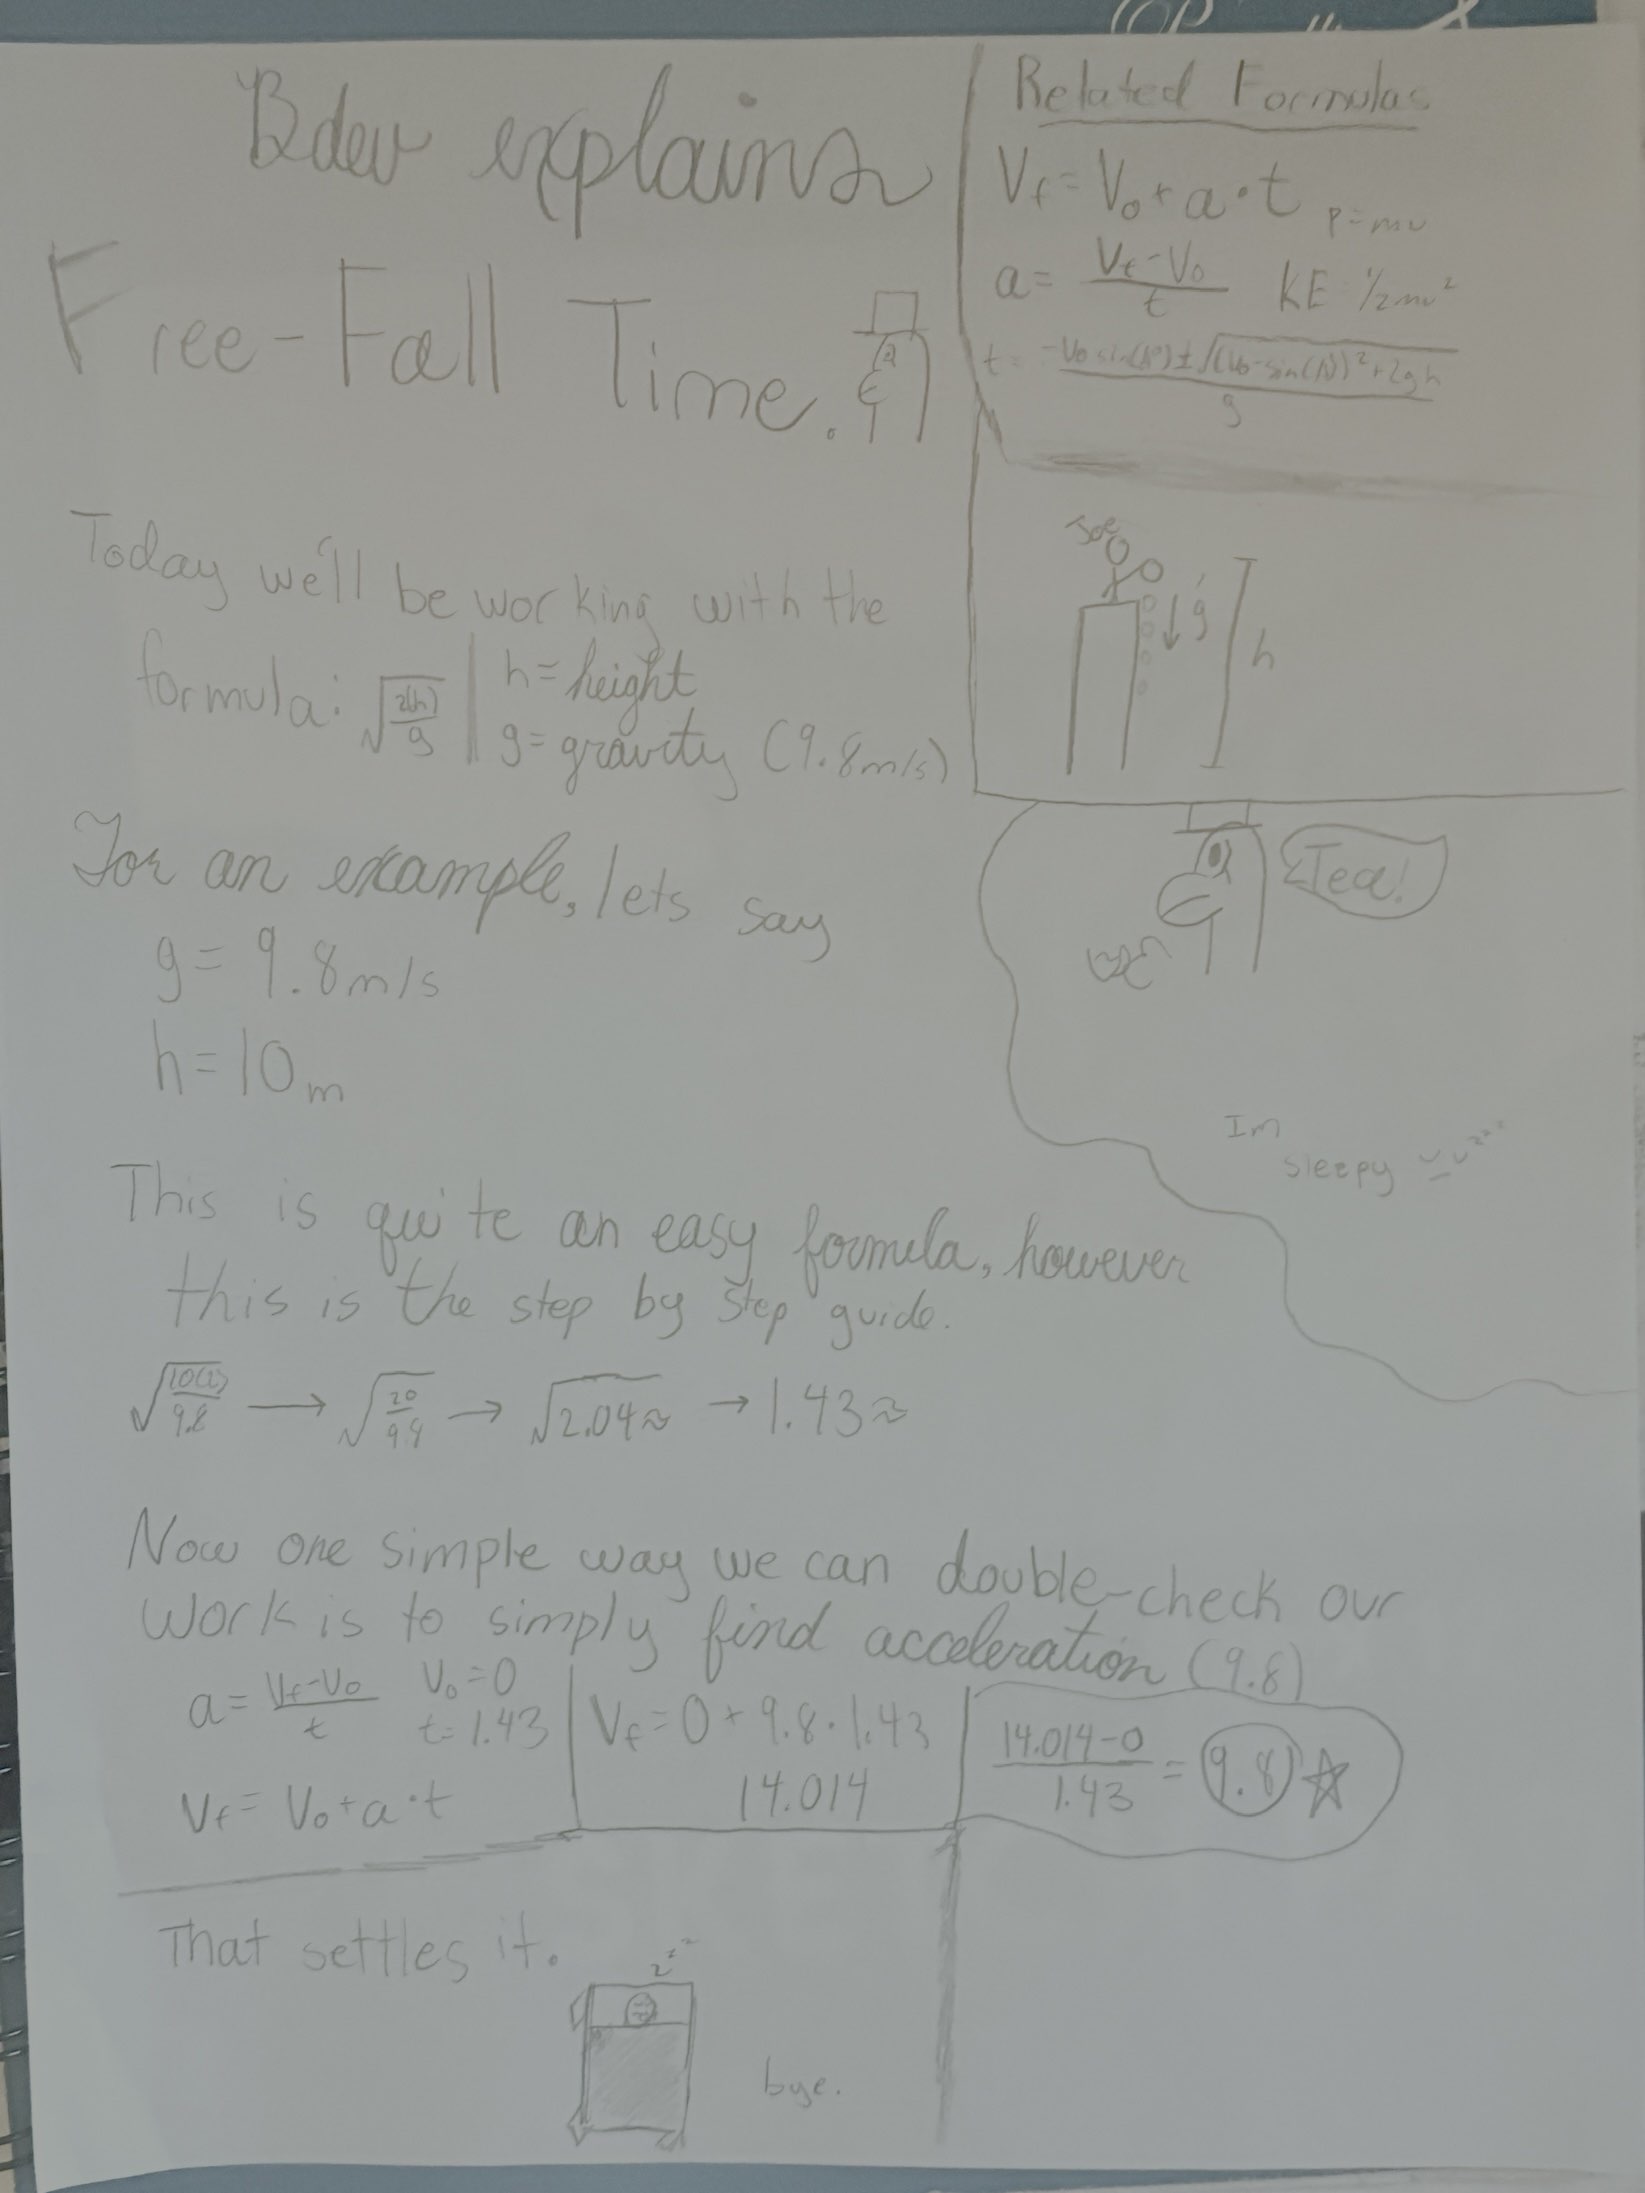 Bdev explains
Free-Fall Time.
Related Formulas
Vf = Vo + a · t
p = mv
a = Vf - Vo / t
KE = 1/2 mv²
t = -Vo sin(N°) ± √(Vo · sin(N°))² + 2gh / g
Today we'll be working with the
formula: √2(h)/g
h = height
g = gravity (9.8m/s)
Joe
g
h
Tea!
For an example, lets say
g = 9.8m/s
h = 10m
Im
sleepy
This is quite an easy formula, however
this is the step by step guide.
√10(2)/9.8 → √20/9.8 → √2.04≈ → 1.43≈
Now one simple way we can double-check our
work is to simply find acceleration (9.8)
a = Vf - Vo / t
Vo = 0
t = 1.43
Vf = Vo + a · t
Vf = 0 + 9.8 · 1.43
14.014
14.014 - 0 / 1.43 = 9.8
That settles it.
zzz
bye.